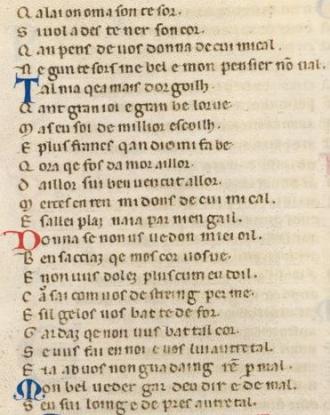 Q alai on oma son tesor.
S iuol ades tener son cor.
Q an pens de uos donna de cui mi cal.
N egun tesors me bel e mon pensier nō ual.
T al nia qea mais dorgoilh
Q ant gran ioi e gran be lor ue.
M as eu soi de millior escoilh.
E plus francs qan dieu mi fa be.
Q ora qe fos damor aillor.
D aillor sui ben uencut allor.
M erces en ren mi dons de cui mi cal.
E sallei plaz naia par men gail.
D onna se non us uedon miei oil.
B en sacciaz qe mos cor uos ue.
E non uus dolez plus cum eu doil.
C ā sai com uos destreing per me.
E sil gelos uos bat te de for.
G ardaz qe non uus bat tal cor.
S euus fai en noi e uos lui autretal.
E ia ab uos non guadaing rē p mal.
M on bel ueder gar deu dir e de mal.
S eu sui loing e de pres autretal.